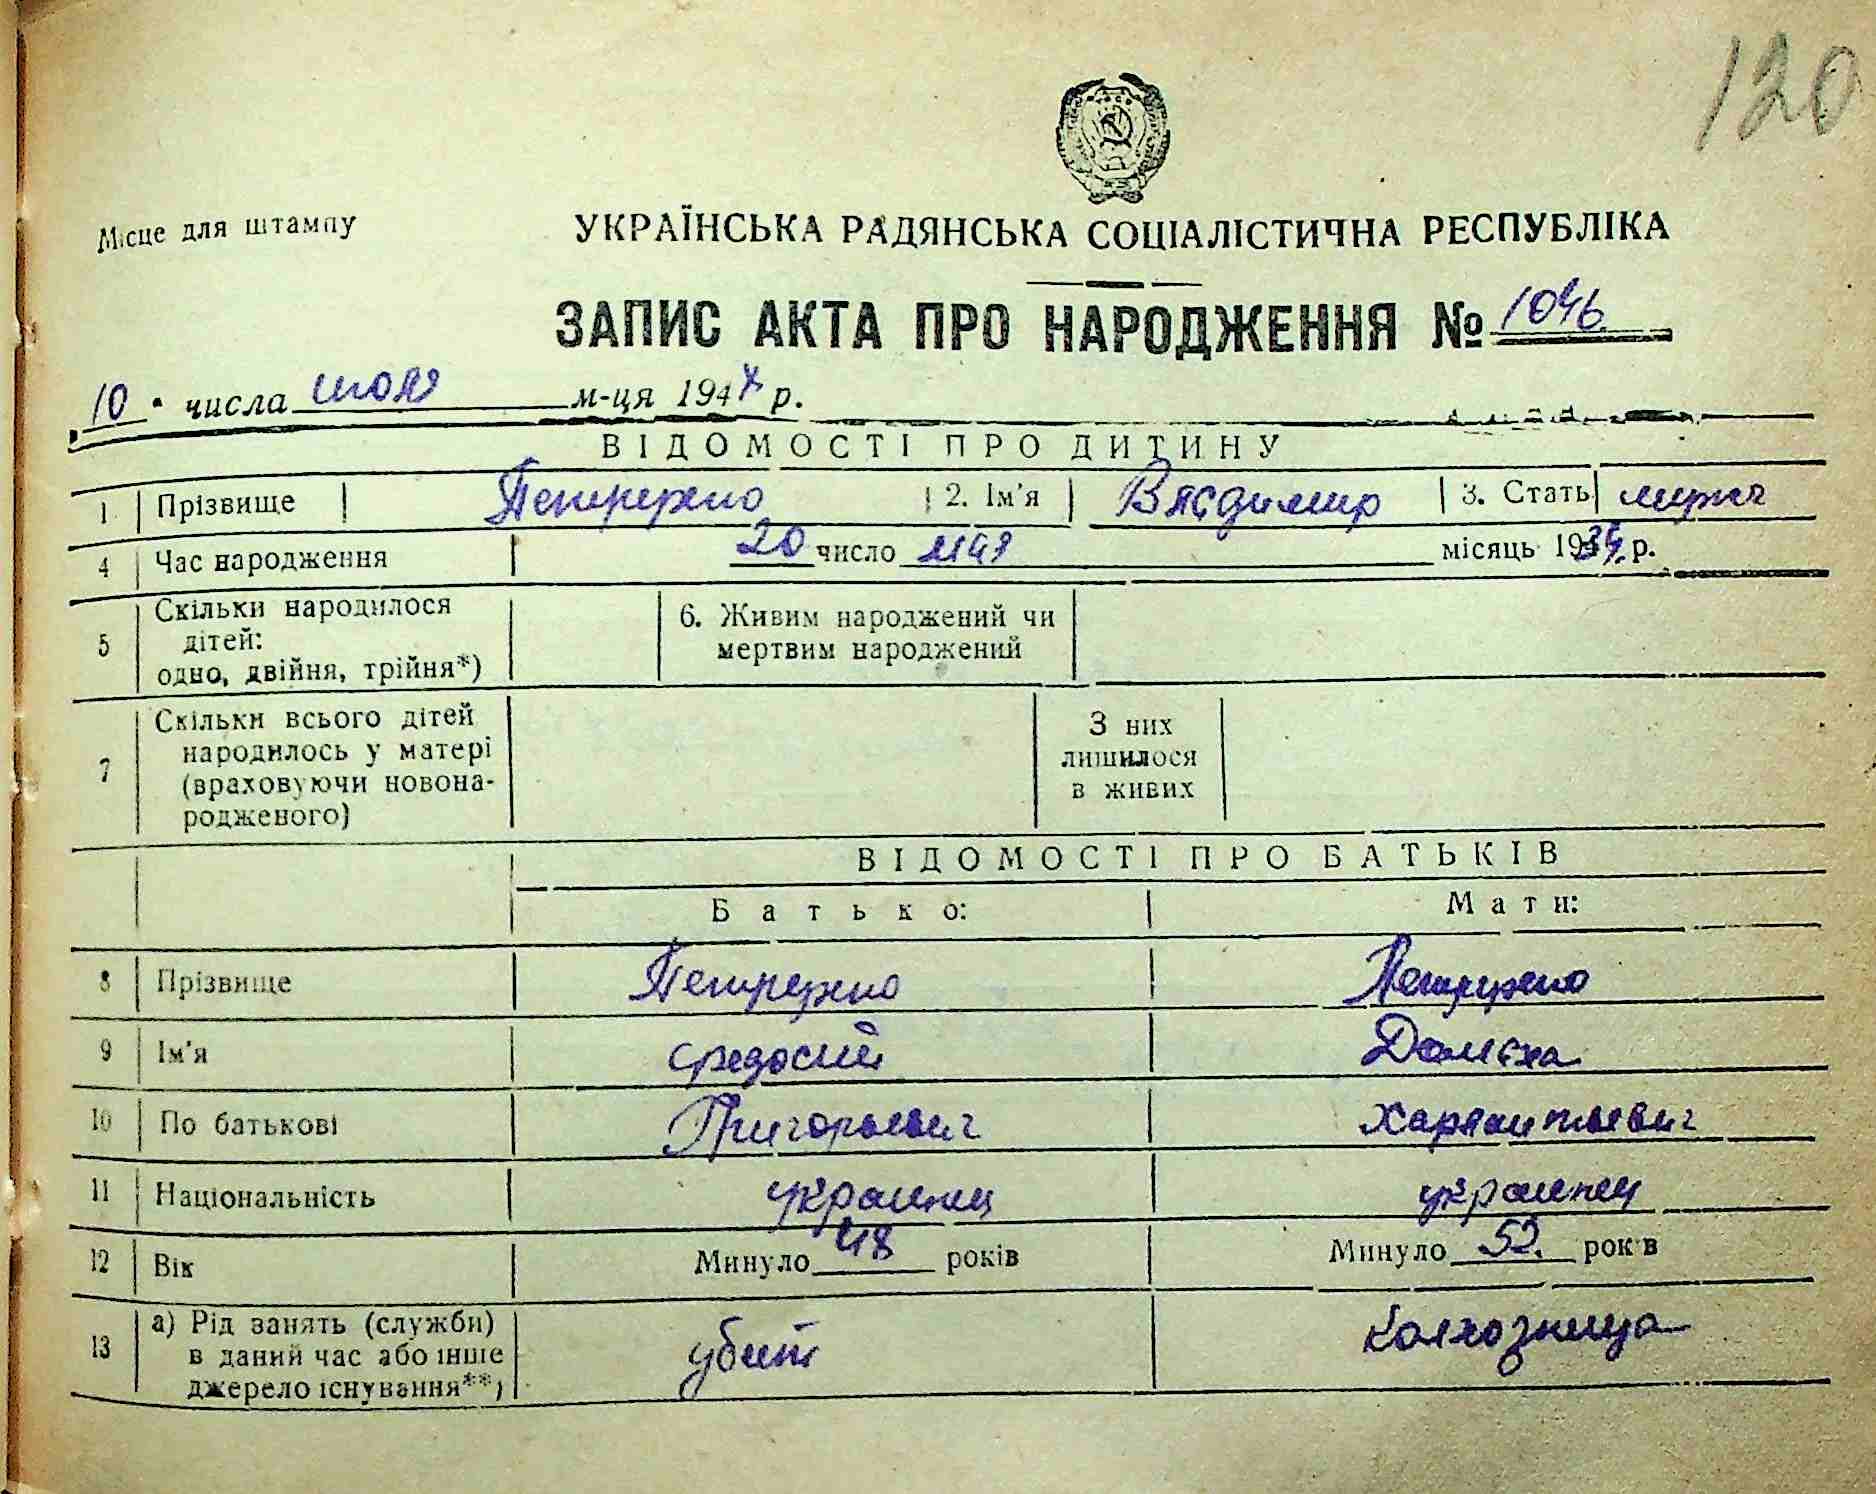 120
Місце для штампу
УКРАЇНСЬКА РАДЯНСЬКА СОЦІАЛІСТИЧНА РЕСПУБЛІКА
ЗАПИС АКТА ПРО НАРОДЖЕННЯ № 1046
10 числа июля м-ця 194 р.
ВІДОМОСТІ ПРО ДИТИНУ
1 Прізвище 2. Ім'я Владимир 3. Стать мужс
4 Час народження 20 число мая місяць 1934 р.
5 Скільки народилося дітей: одно, двійня, трійня*) 6. Живим народжений чи мертвим народжений
7 Скільки всього дітей народилось у матері (враховуючи новона-родженого) З них лишилося в живих
ВІДОМОСТІ ПРО БАТЬКІВ
Батько: Мати:
8 Прізвище
9 Ім'я Федосий Домаха
10 По батькові Григорьевич
11 Національність украинец украинец
12 Вік Минуло 48 років Минуло 52. років
13 а) Рід занять (служби) в даний час або інше джерело існування**) убит колхозница